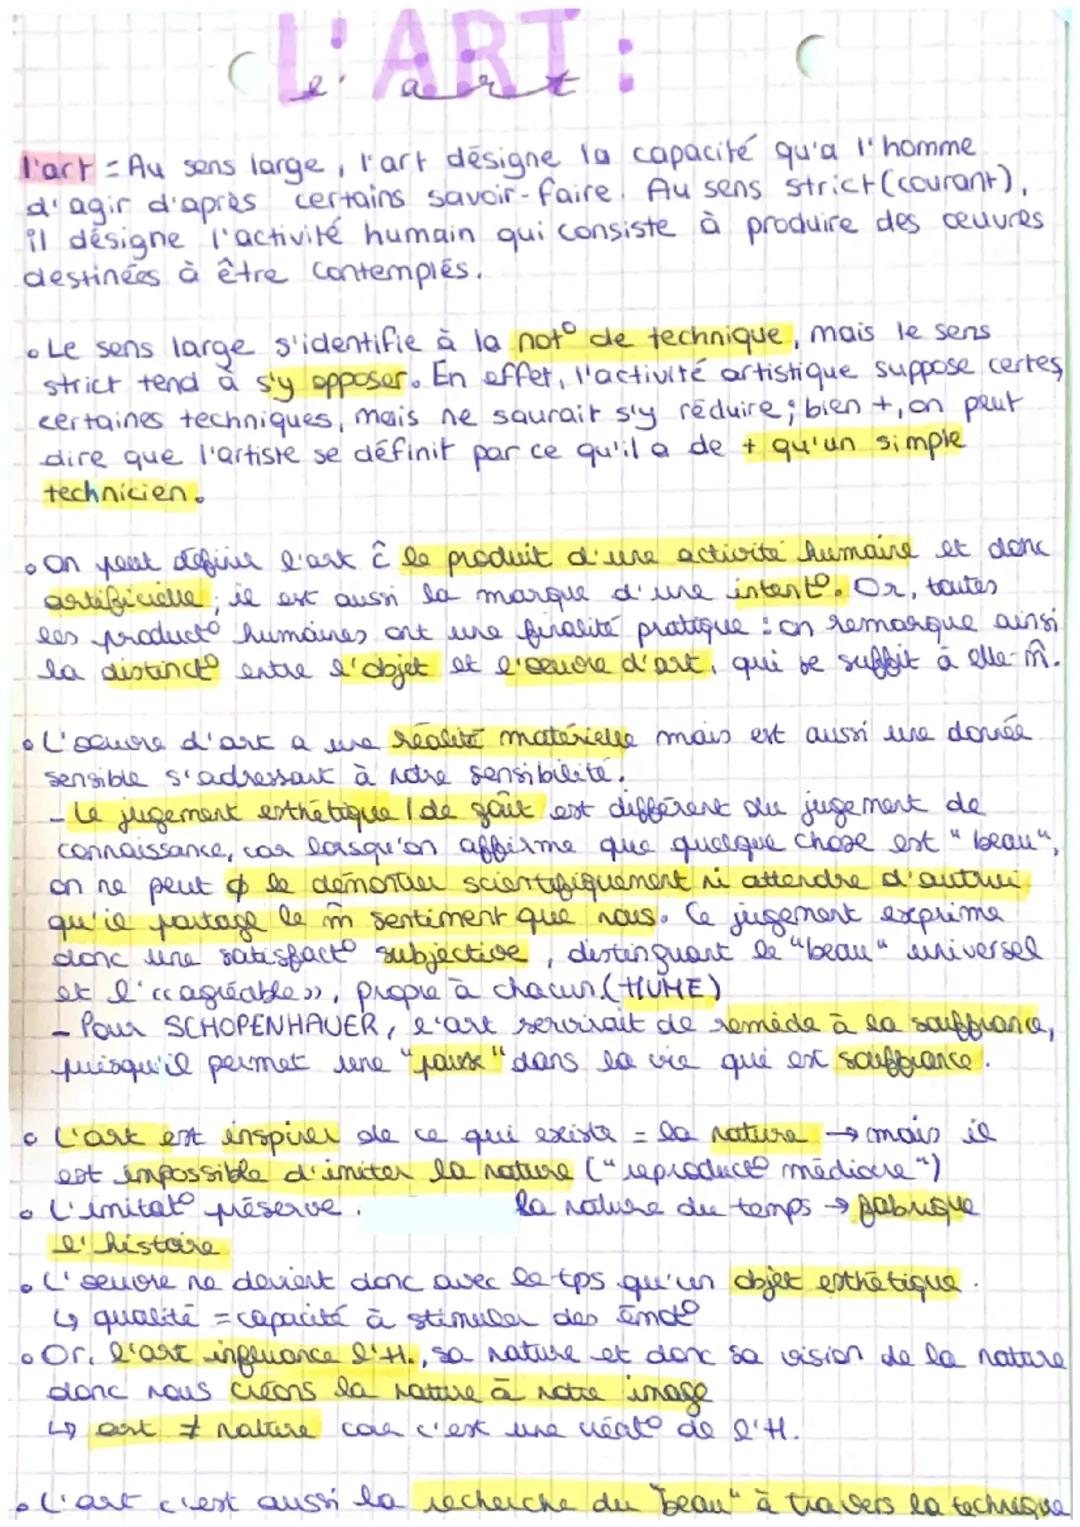 L'ART :
l'art
l'art = Au sens large, l'art désigne la capacité qu'a l'homme
d'agir d'après certains savoir-faire. Au sens strict (courant),
il désigne l'activité humain qui consiste à produire des œuvres
destinées à être contemplés.
• Le sens large s'identifie à la not° de technique, mais le sens
strict tend à s'y opposer. En effet, l'activité artistique suppose certes
certaines techniques, mais ne saurait s'y réduire ; bien +, on peut
dire que l'artiste se définit par ce qu'il a de + qu'un simple
technicien.
• On peut définir l'art ĉ le produit d'une activité humaine et donc
artificielle ; il est aussi la marque d'une intent°. Or, toutes
les product° humaines ont une finalité pratique : on remarque ainsi
la distinct° entre l'objet et l'œuvre d'art, qui se suffit à elle-m̂.
• L'œuvre d'art a une réalité matérielle mais est aussi une donnée
sensible s'adressant à notre sensibilité.
- Le jugement esthétique / de goût est différent du jugement de
connaissance, car lorsqu'on affirme que quelque chose est "beau",
on ne peut φ le démontrer scientifiquement ni attendre d'autrui
qu'il partage le m̂ sentiment que nous. Ce jugement exprime
donc une satisfact° subjective, distinguant le "beau" universel
et l'«agréable», propre à chacun (HUME)
- Pour SCHOPENHAUER, l'art servirait de remède à la souffrance,
puisqu'il permet une "pause" dans la vie qui est souffrance.
• L'art est inspirer de ce qui existe = la nature → mais il
est impossible d'imiter la nature ("reproduct° médiocre")
• L'imitat° préserve. la nature du temps → fabrique
l'histoire
• L'œuvre ne devient donc avec le tps qu'un objet esthétique.
↳ qualité = capacité à stimuler des émot°
• Or, l'art influence l'H., sa nature et donc sa vision de la nature
donc nous créons la nature à notre image
↳ art ≠ nature car c'est une créat° de l'H.
• L'art c'est aussi la recherche du "beau" à travers la technique